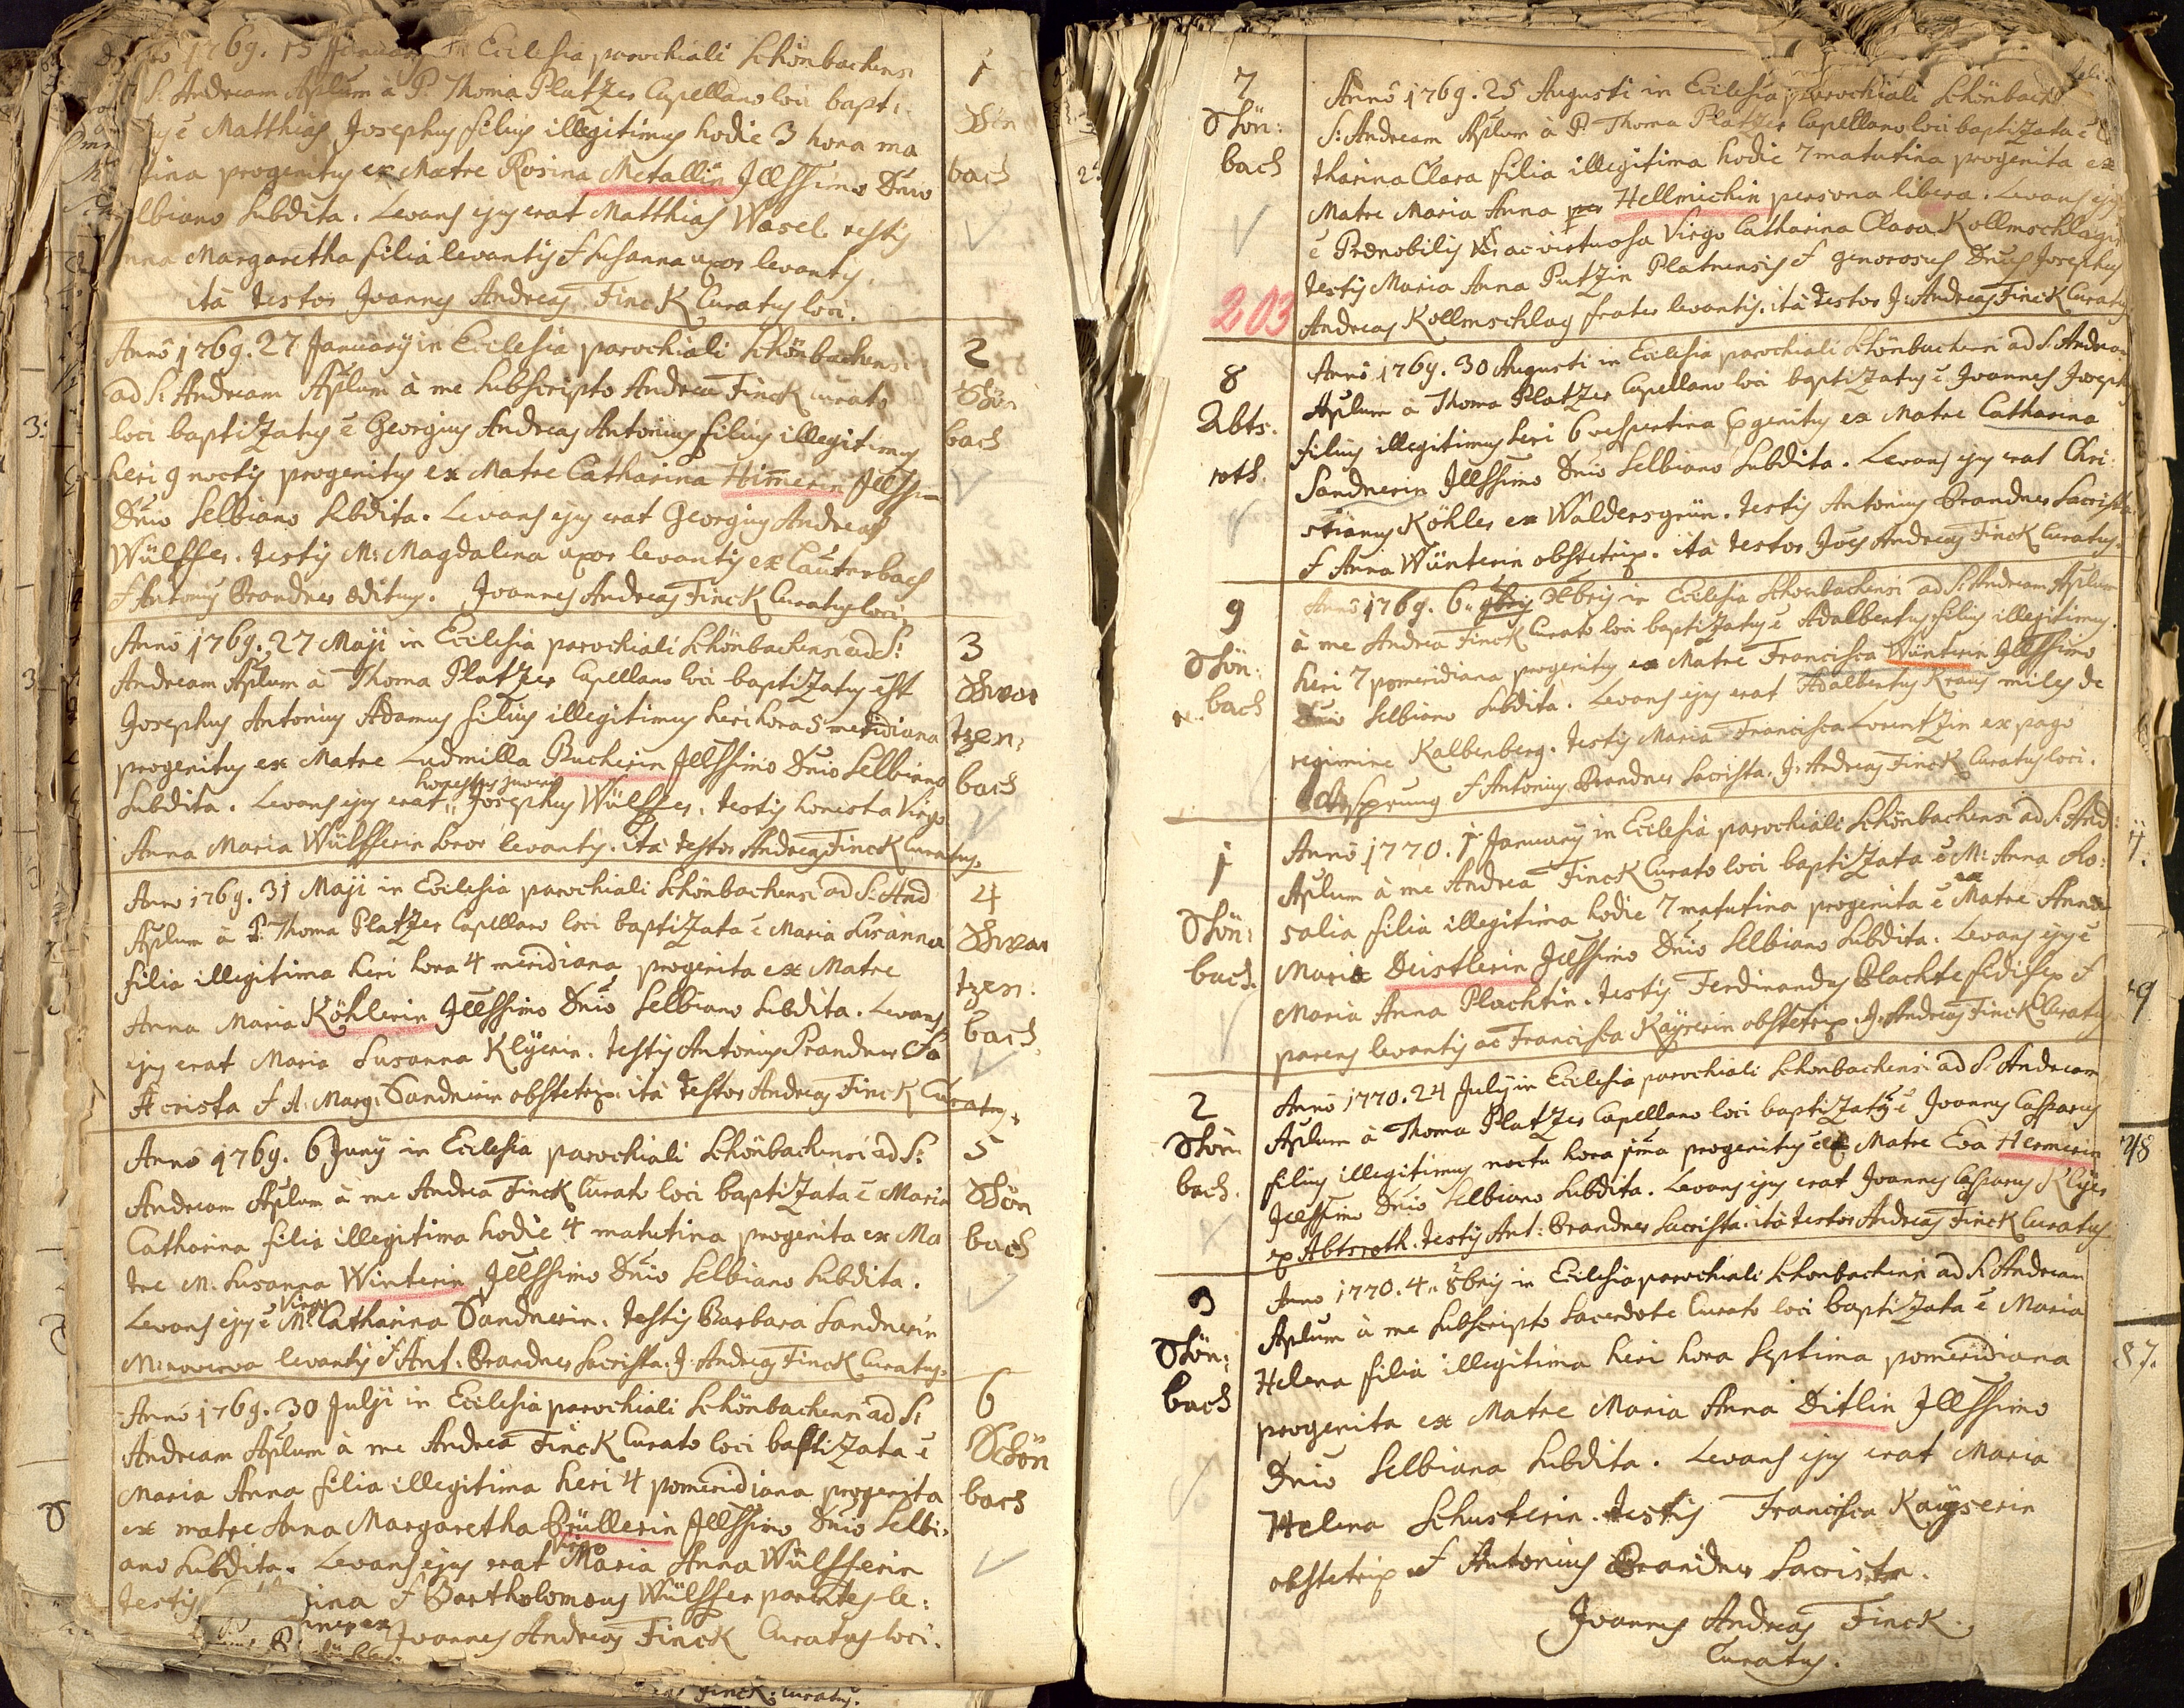 1769. 15 January in Ecclesia parochiali Schönbachensi
S: Andream Aplum à P. Thoma Platzer Capellano loci bapt:
ē Matthias Josephus filius illegitimus hodie 3 hora ma
tina progenitus ex Matre Rosina Metallin Jllssimo Dnio
lbiano Subdita. Levans ejus erat Matthias Wasel testis
nna Margaretha filia levantis & Susanna uxor levantis.
ità testor Joannes Andreas Finck Curatus loci.
1
bach
Annô 1769. 27 January in Ecclesia parochiali Schönbachensi
ad S: Andream Aplum à me Subscripto Andrea Finck curato
loci baptizatus ē Georgius Andreas Antonius filius illegitimus
heri 9 noctis progenitus ex Matre Catharina Himerin Jllssi-
Dnio Selbiano Subdita. Levans ejus erat Georgius Andreas
Wülffer. testis M: Magdalena uxor levantis ex Lauterbach
& Antonius Brandner Ædituus. Joannes Andreas Finck Curatus loci
2
Schön
bach
Annô 1769. 27 Maji in Ecclesia parochiali Schönbachensi ad S:
Andream Aplum à Thoma Platzer Capellano loci baptizatus est
Josephus Antonius Adamus filius illegitimus heri hora 5 meridiana
progenitus ex Matre Ludmilla Bucherin Jllssimo Dnio Selbiano
honestus juvenis
Subdita. Levans ejus erat " Josephus Wülffer. testis honesta Virgo
Anna Maria Wülfferin Soror levantis. ità testor Andreas Finck Curatus.
3
Schwar
tzen:
bach
Anno 1769. 31 Maji in Ecclesia parochiali Schönbachensi ad S: And
Aplum à P. Thoma Platzer Capellano loci baptizata ē Maria Susanna
filia illegitima heri hora 4 meridiana progenita ex Matre
Anna Maria Köhlerin Jllssimo Dnio Selbiano Subdita. Levans
ejus erat Maria Susanna Klÿerin. testis Antonius Brandner Sa
crista & A: Marg: Sandnerin obstetrix. ità testor Andreas Finck Curatus.
4
Schwar
tzen:
bach
Annô 1769. 6 Juny in Ecclesia parochiali Schönbachensi ad S:
Andream Aplum à me Andrea Finck Curato loci baptizata ē Maria
Catharina filia illegitima hodie 4 matutina progenita ex Ma
tre M. Susanna Winterin Jllssimo Dnio Selbiano Subdita.
Virgo
Levans ejus ē M: Catharina Sandnerin. testis Barbara Sandnerin
M: noverca levantis & Ant: Brandner Sacrista. J: Andreas Finck Curatus.
5
Schön
bach
Annô 1769. 30 Julji in Ecclesia parochiali Schönbachensi ad S:
Andream Aplum à me Andrea Finck Curato loci baptizata ē
Maria Anna filia illegitima heri 4 pomeridiana progenita
ex matre Anna Margaretha Brüllerin Jllssimo Dnio Selbi-
Virgo
ano Subdita. Levans ejus erat Maria Anna Wülfferin
testis ina & Bartholomæus Wülffer parentes le:
Joannes Andreas Finck Curatus loci.
6
Schön
bach
Finck: curatus.
7
Schön:
bach
203
Annô 1769. 25 Augusti in Ecclesia parochiali Schönbach
S: Andream Aplum à P. Thoma Platzer Capellano loci baptizata ē Ca
tharina Clara filia illegitima hodie 7 matutina progenita ex
Matre Maria Anna Hellmichin persona libera. Levans ejus
ē Prænobilis ac virtuosa Virgo Catharina Clara Kollmschlagin
testis Maria Anna Putzin Platnensis & generosus Dnus Josephus
Andreas Kollmschlag frater levantis. ità testor J: Andreas Finck Curatus
8
Abts:
roth.
Annô 1769. 30 Augusti in Ecclesia parochiali Schönbachensi ad S: Andream
Aplum à Thoma Platzer Capellano loci baptizatus ē Joannes Joseph
filius illegitimus heri 6 vespertina progenitus ex Matre Catharina
Sandnerin Jllssimo Dnio Selbiano Subdita. Levans ejus erat Chri
stianus Köhler ex Waldersgrün. testis Antonius Brandner Sacrista
& Anna Wünterin obstetrix. ità testor Joes Andreas Finck Curatus.
9
Schön:
bach
Annô 1769. 6 " 9bris Xbris in Ecclesia Schonbachensi ad S: Andream Aplum
à me Andrea Finck Curato loci baptizatus ē Adalbertus filius illegitimus.
heri 7 pomeridiana progenitus ex Matre Francisca Wünterin Jllssimo
Dnio Selbiano Subdita. Levans ejus erat Adalbertus Kraus miles de
regimine Kalbenberg. testis Maria Francisca Lorentzin ex pago
Ursprung & Antonius Brandner Sacrista. J: Andreas Finck Curatus loci.
1
Schön:
bach.
Annô 1770. 1 January in Ecclesia parochiali Schönbachensi ad S: And:
Aplum à me Andrea Finck Curato loci baptizata ē M: Anna Ro:
salia filia illegitima hodie 7 matutina progenita ē ex Matre Anna
Maria Deistlerin Jllssimo Dnio Selbiano Subdita. Levans ejus ē
Maria Anna Plachtin. testis Ferdinandus Plachte &
parens levantis ac Francisca Käyserin obstetrix. J: Andreas Finck Curatus
2
Schön
bach.
Annô 1770. 24 July in Ecclesia parochiali Schonbachensi ad S: Andream
Aplum à Thoma Platzer Capellano loci baptizatus ē Joannes Casparus
filius illegitimus noctu hora jma progenitus ex Matre Eva Hermerin
Jllssimo Dnio Selbiano Subdita. Levans ejus erat Joannes Casparus Klÿer
ex Abtsroth. testis Ant: Brandner Sacrista. ità testor Andreas Finck Curatus
3
Schön:
bach
Anno 1770. 4 " 8bris in Ecclesia parochiali Schonbachensi ad S: Andream
Aplum à me Subscripto Sacerdote Curato loci baptizata ē Maria
Helena filia illegitima heri hora Septima pomeridiana
progenita ex Matre Maria Anna Ditlin Jllssimo
Dnio Selbiana Subdita. Levans ejus erat Maria
Helena Schusterin. testis Francisca Kaÿserin
obstetrix & Antonius Brandner Sacrista.
Joannes Andreas Finck.
Curatus.